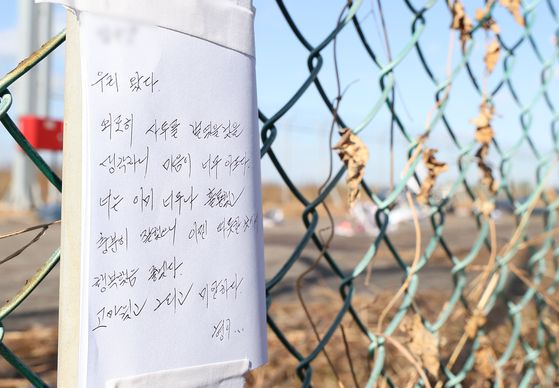 우리 왔다.
외로이 사투를 벌였을것을
생각하니 마음이 너무 아프다.
너는 이미 너무나 훌륭했고
충분히 잘했으니 이젠 따뜻한
행복했음 좋겠다.
고마웠고 그리고 미안하다.
형이...